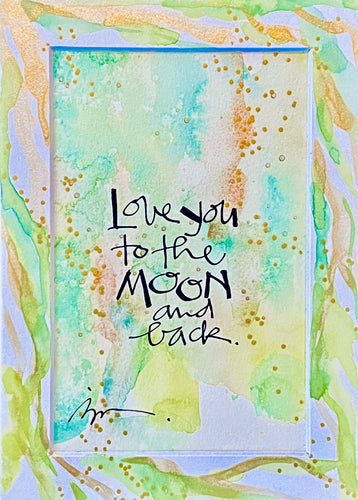 Love you
to the
MOON
and
back.